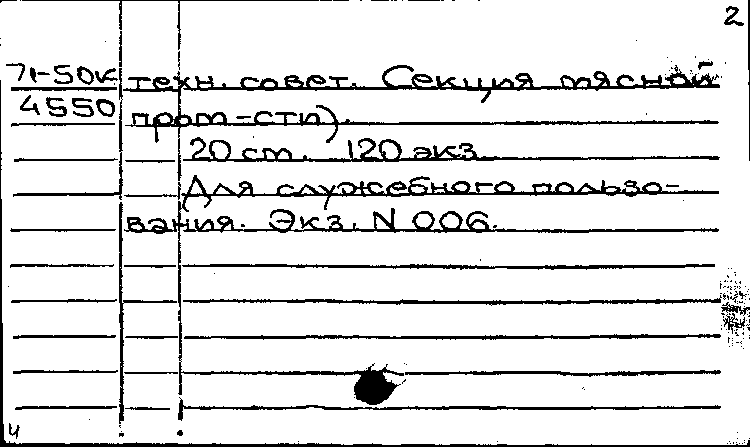 2
71-50к техн. совет. Секция мясной
4550 пром-сти).
20 см. 120 экз.
Для служебного пользо-
вания. Экз. N 006.
ч